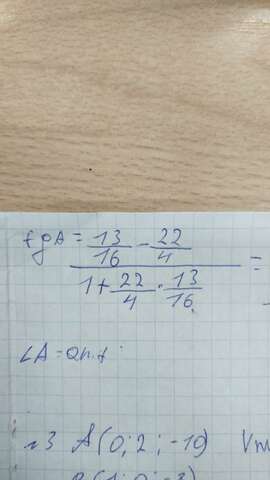 tgA = \frac{\frac{13}{16} - \frac{22}{4}}{1 + \frac{22}{4} \cdot \frac{13}{16}} =
∠A =
№3 A(0; 2; -10)